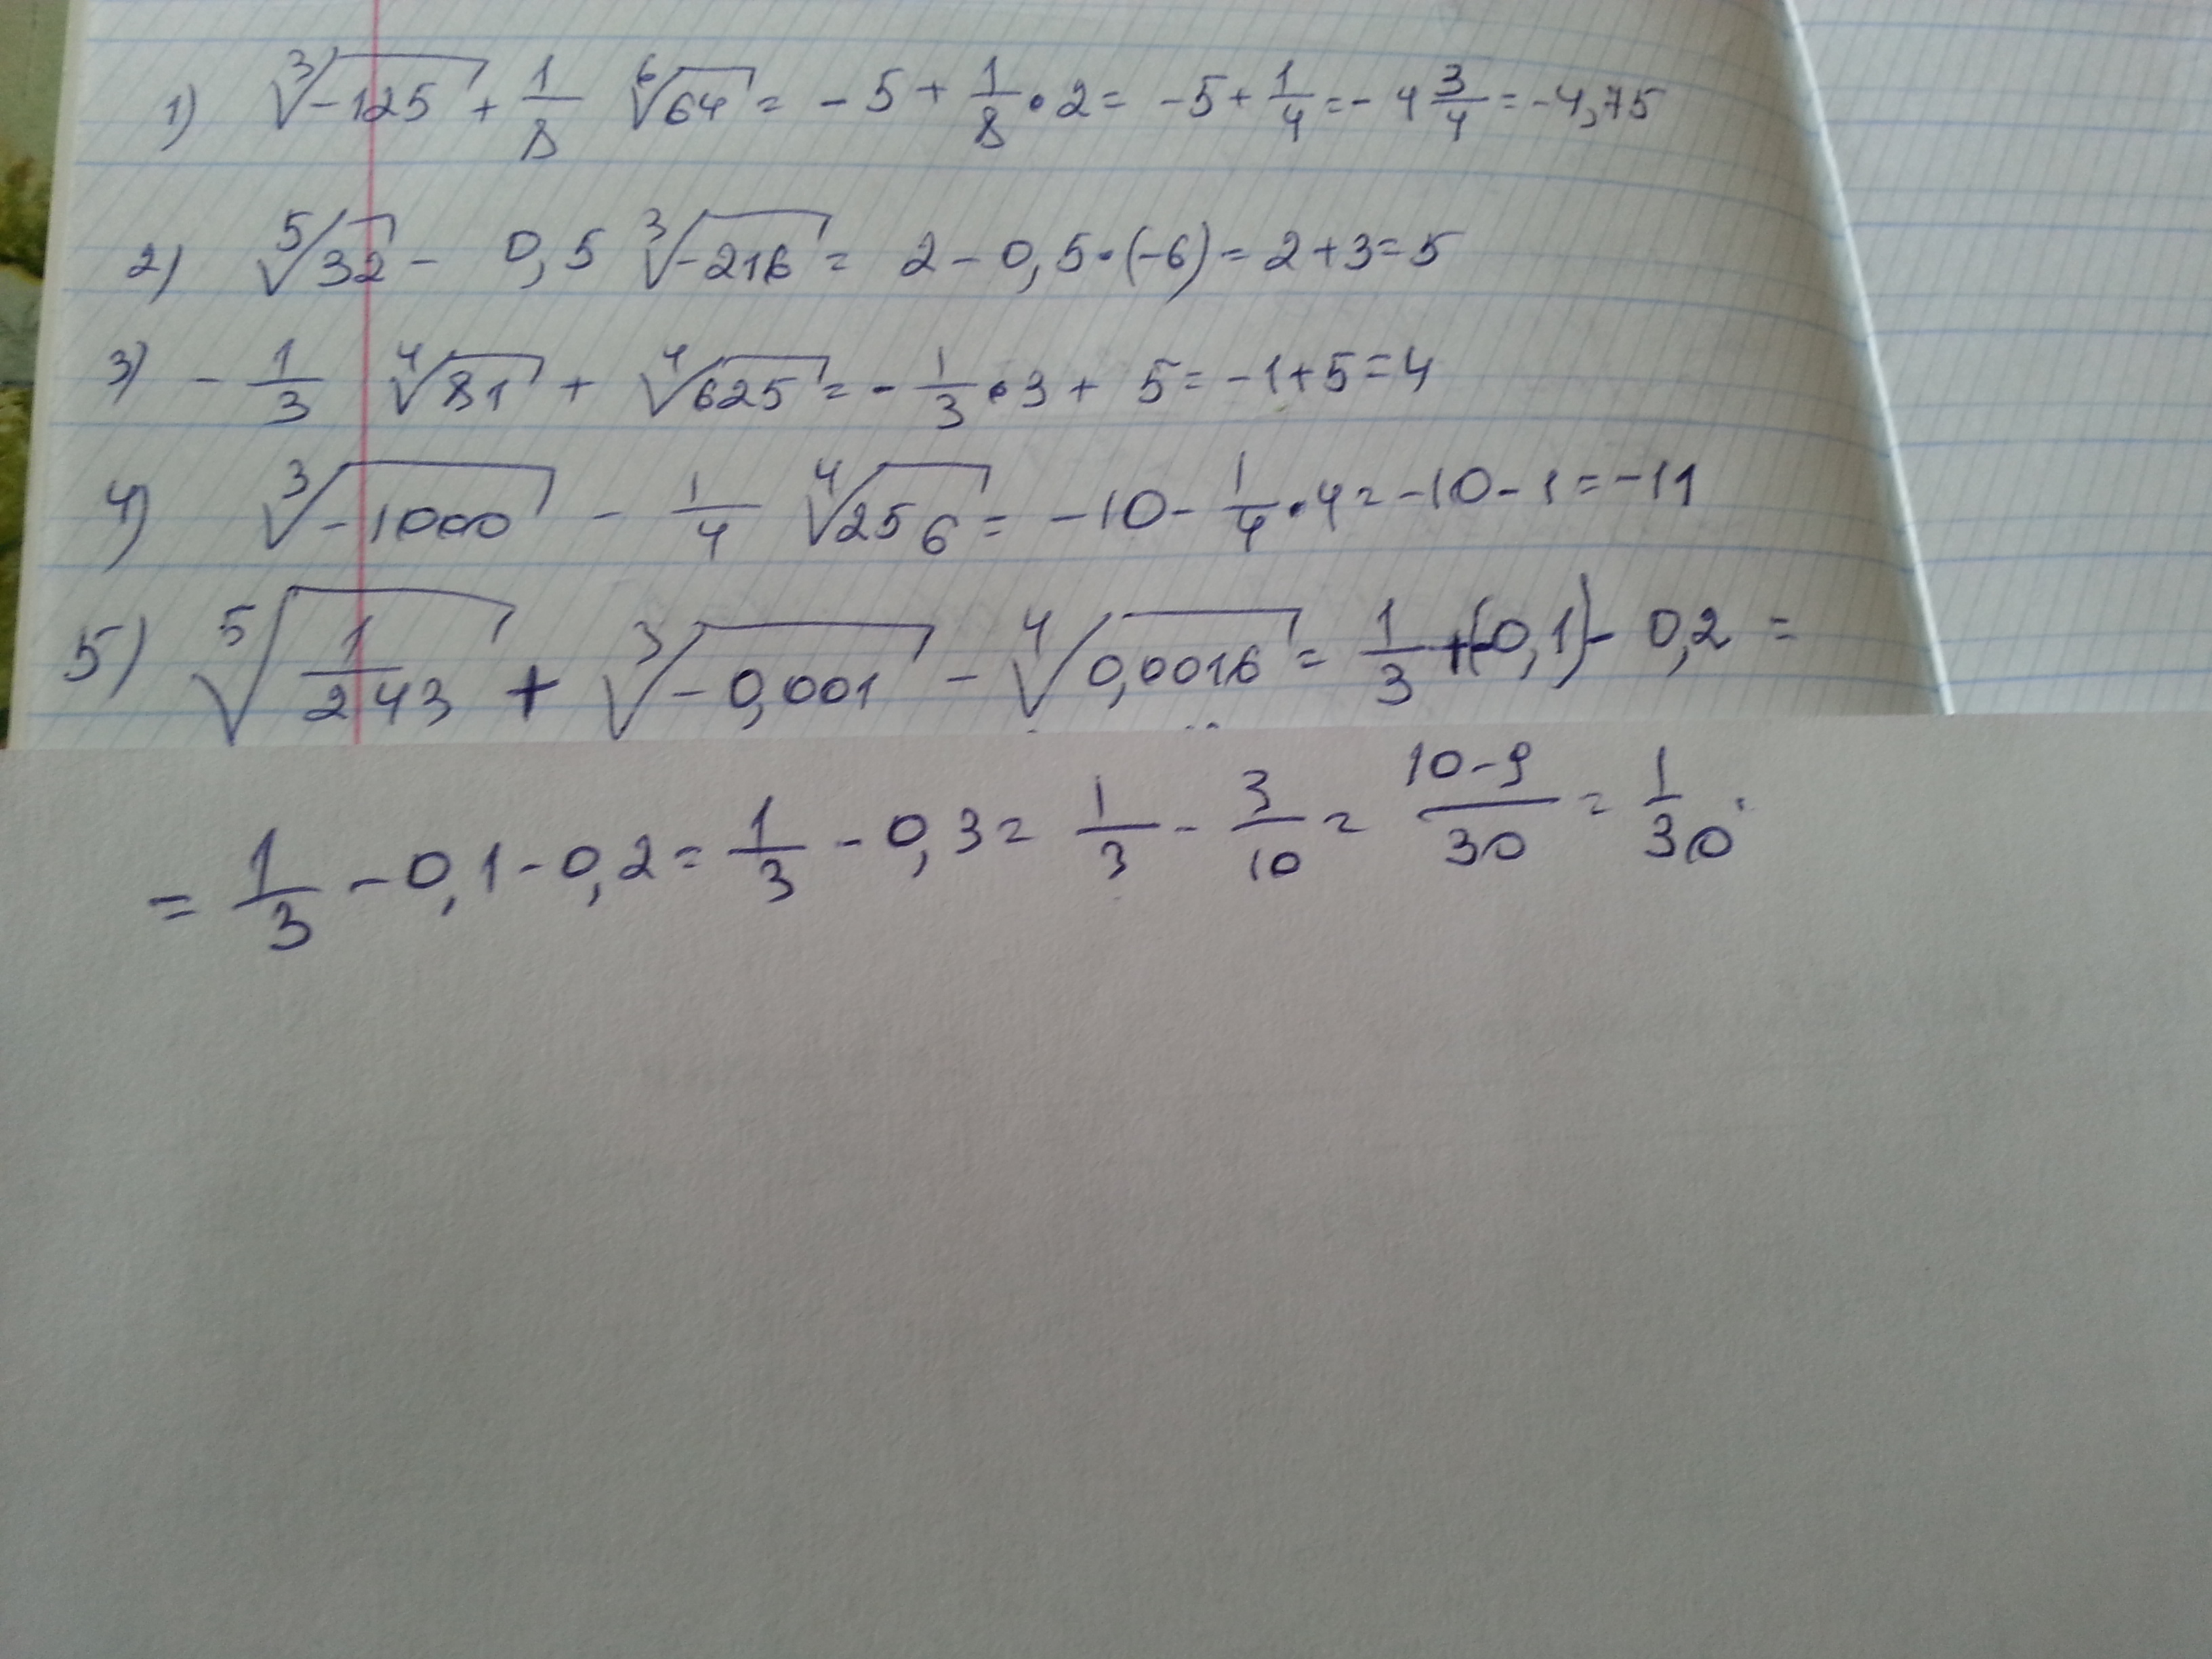 1) ∛-125 + 1/8 ⁶√64 = -5 + 1/8 · 2 = -5 + 1/4 = -4 3/4 = -4,75
2) ⁵√32 - 0,5 ∛-216 = 2 - 0,5 · (-6) = 2 + 3 = 5
3) - 1/3 ⁴√81 + ⁴√625 = - 1/3 · 3 + 5 = -1 + 5 = 4
4) ∛-1000 - 1/4 ⁴√256 = -10 - 1/4 · 4 = -10 - 1 = -11
5) ⁵√(1/243) + ∛-0,001 - ⁴√0,0016 = 1/3 + (-0,1) - 0,2 =
= 1/3 - 0,1 - 0,2 = 1/3 - 0,3 = 1/3 - 3/10 = (10-9)/30 = 1/30.